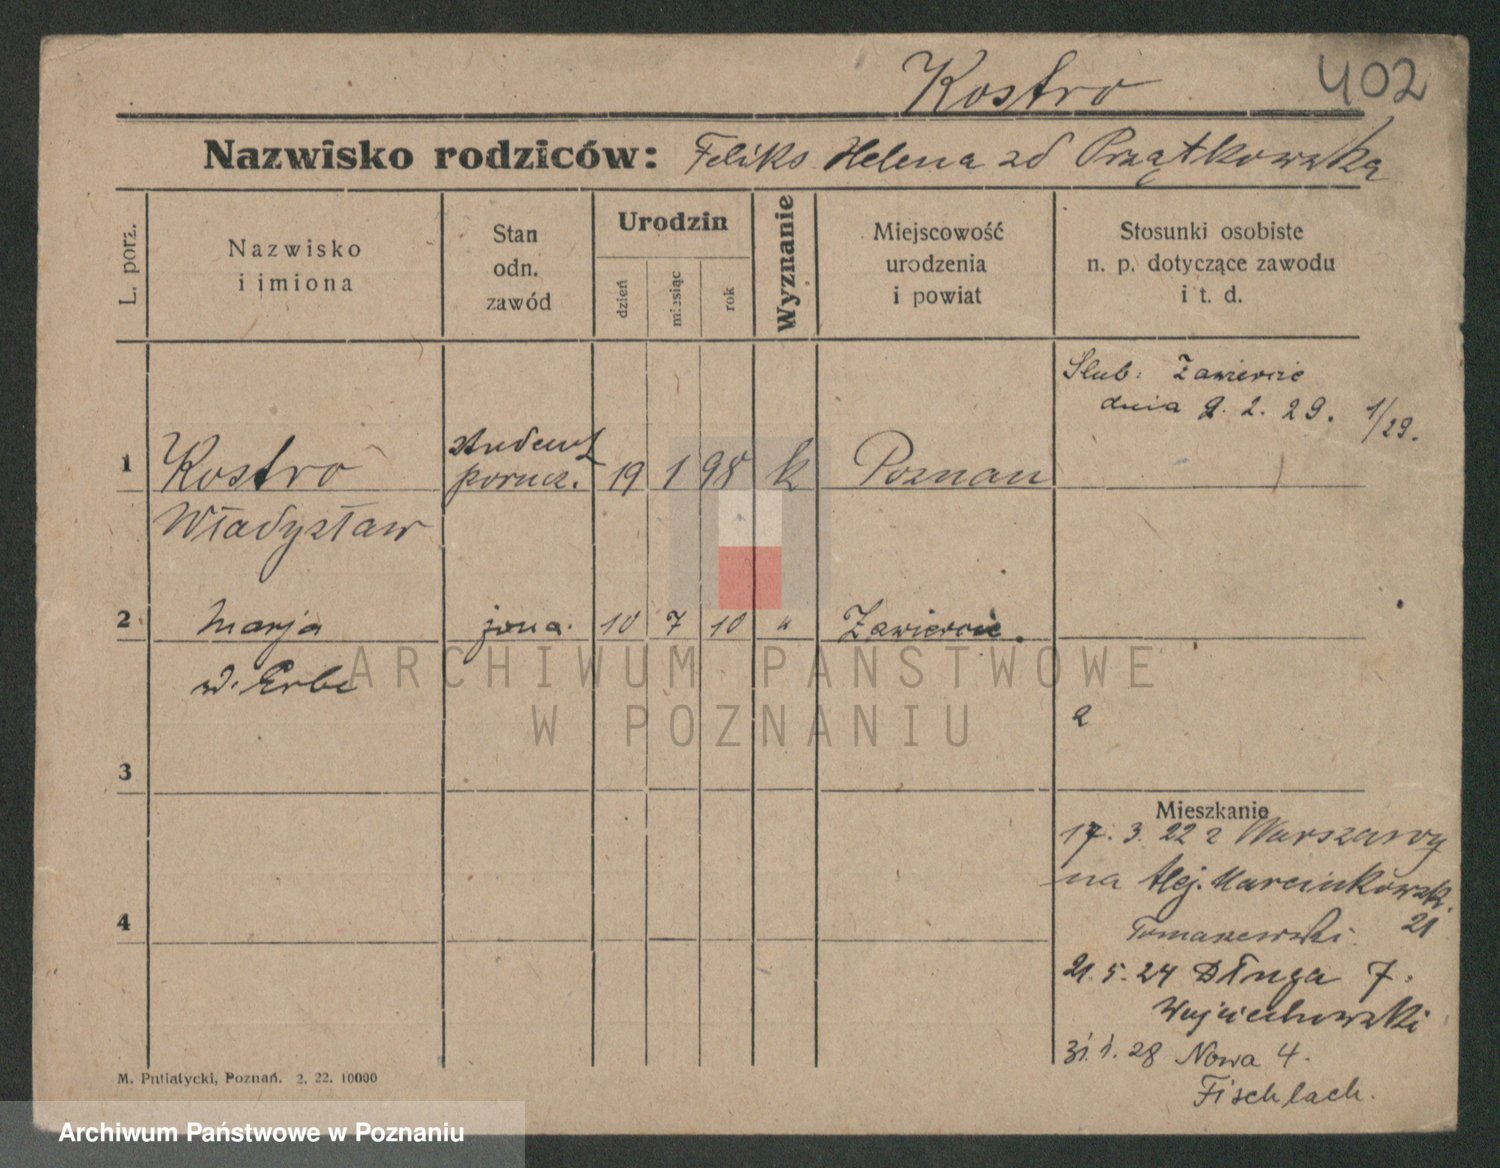 Kostro
402
Nazwisko rodziców: Feliks Helena zd Prządkowska
L. porz.
Nazwisko
i imiona
Stan
odn.
zawód
Urodzin
dzień
miesiąc
rok
Wyznanie
Miejscowość
urodzenia
i powiat
Stosunki osobiste
n. p. dotyczące zawodu
i t. d.
Slub: Zawiercie
dnia 9. 2. 29. 1/29.
1 Kostro student 19 1 98 k Poznan
porucz.
Władysław
2 Marja żona. 10 7 10 " Zawiercie.
ARCHIWUM PAŃSTWOWE
W POZNANIU
3
Mieszkanie
17. 3. 22 z Warszawy
na Alej. Marcinkowsk.
21
Tomaszewski.
4
21. 5. 24 Długa 7.
Wojciechowski
31. 1. 28 Nowa 4.
Fischlach.
M. Putiatycki, Poznań. 2. 22. 10000
Archiwum Państwowe w Poznaniu